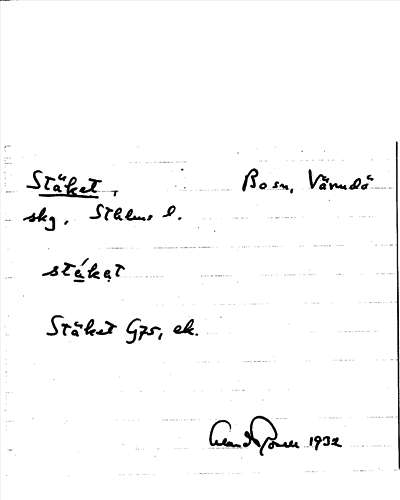 Stäket, Boo sn, Värmdö
skg, Sthlms l.
stä́kat
Stäket G75, ek.
1932